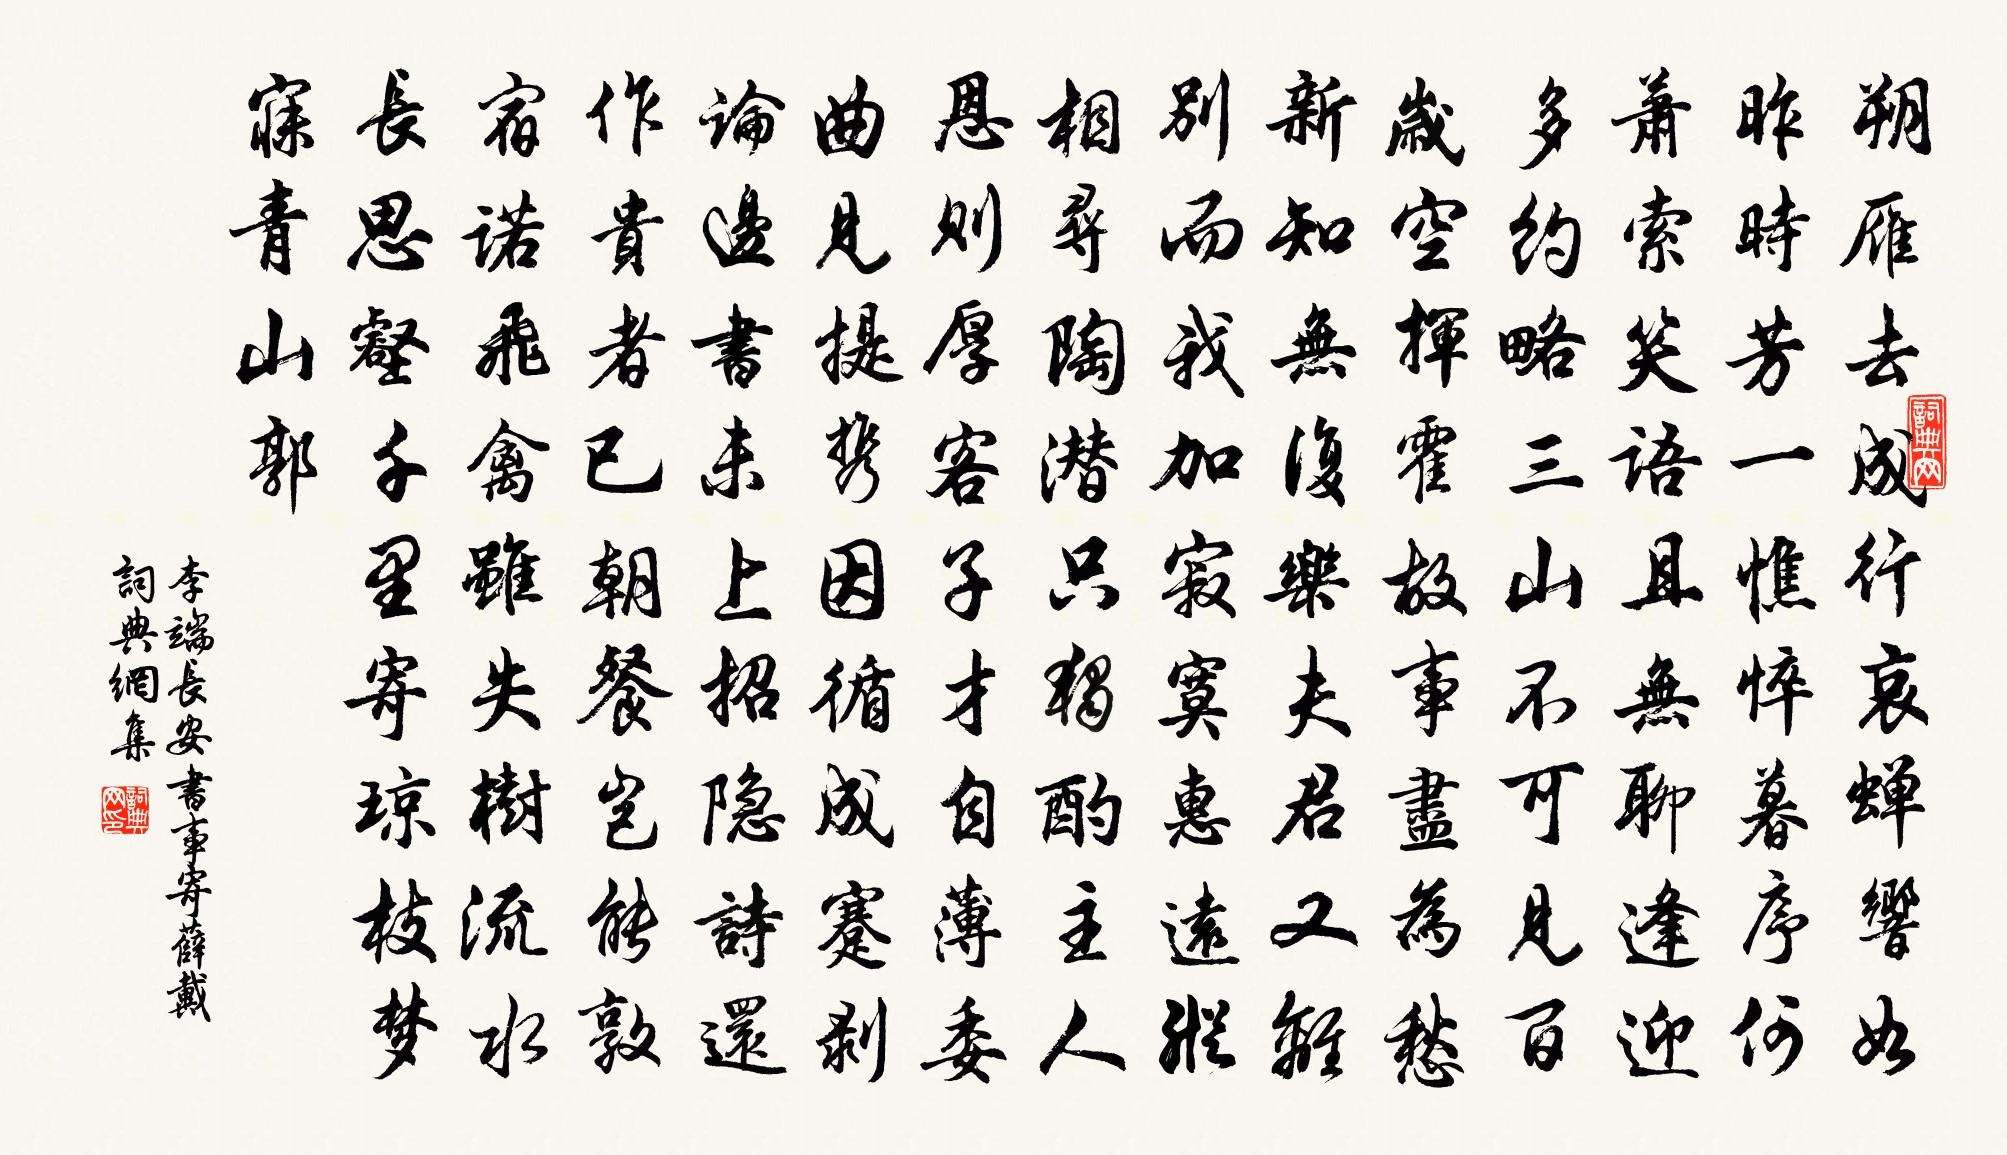 朔雁去成行哀蝉響如
昨時芳一憔悴暮序何
蕭索笑語且無聊逢迎
多約略三山不可見百
歲空揮霍故事盡為愁
新知無復樂夫君又離
別而我加寂寞惠遠縱
相尋陶潜只獨酌主人
恩則厚客子才自薄委
曲見提携因循成蹇剥
論邊書未上招隐詩還
作貴者已朝餐岂能敦
宿諾飛禽雖失樹流水
長思壑千里寄琼枝梦
寐青山郭
李端長安書事寄薛戴
詞典網集
詞典网
詞典网